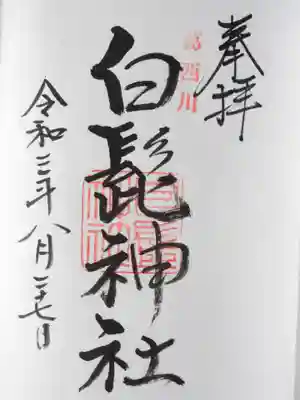 奉拝
葛西川
白髭神社
令和三年八月二十七日